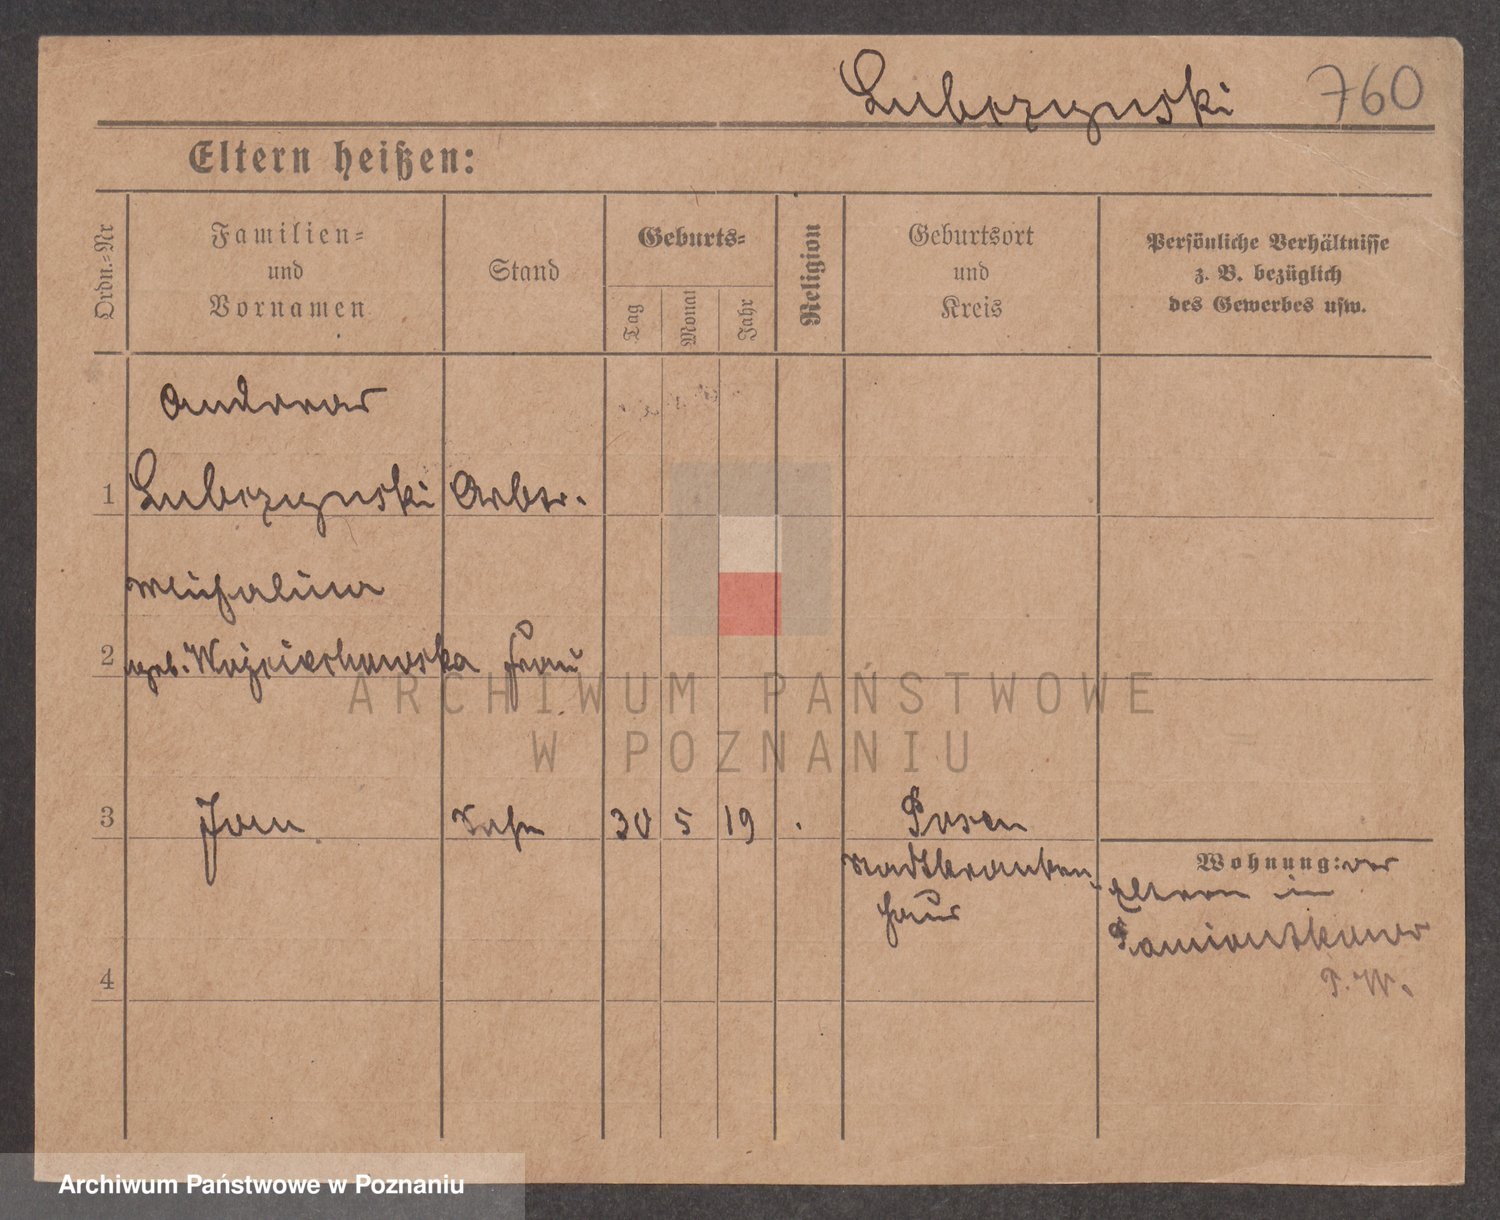 Lubczynski 760
Eltern heißen:
Ordn.=Nr
Familien=
und
Vornamen
Stand
Geburts=
Tag
Monat
Jahr
Religion
Geburtsort
und
Kreis
Persönliche Verhältnisse
z. B. bezüglich
des Gewerbes usw.
Andreas
1 Lubczynski Arbtr.
Michalina
2 geb. Wojciechowska Frau
3 Jan Sohn 30 5 19 . Posen
Stadtkranken-
haus
Wohnung: der
Eltern in
Pamiontkowo
P. W.
4
ARCHIWUM PAŃSTWOWE
W POZNANIU
Archiwum Państwowe w Poznaniu